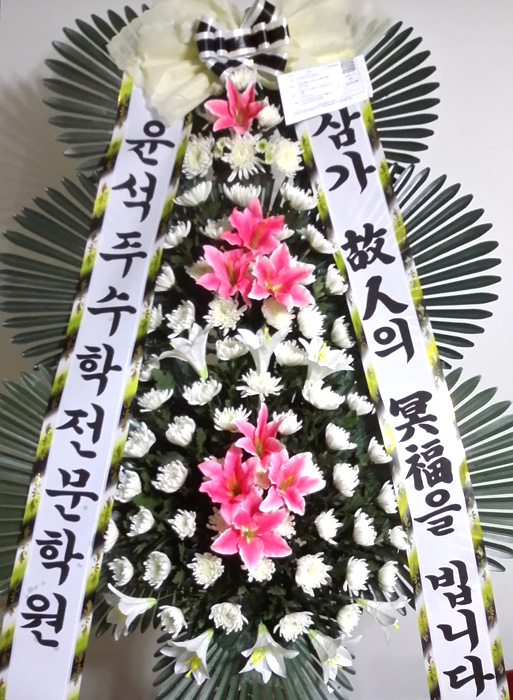 윤석주수학전문학원
삼가 故人의 冥福을 빕니다